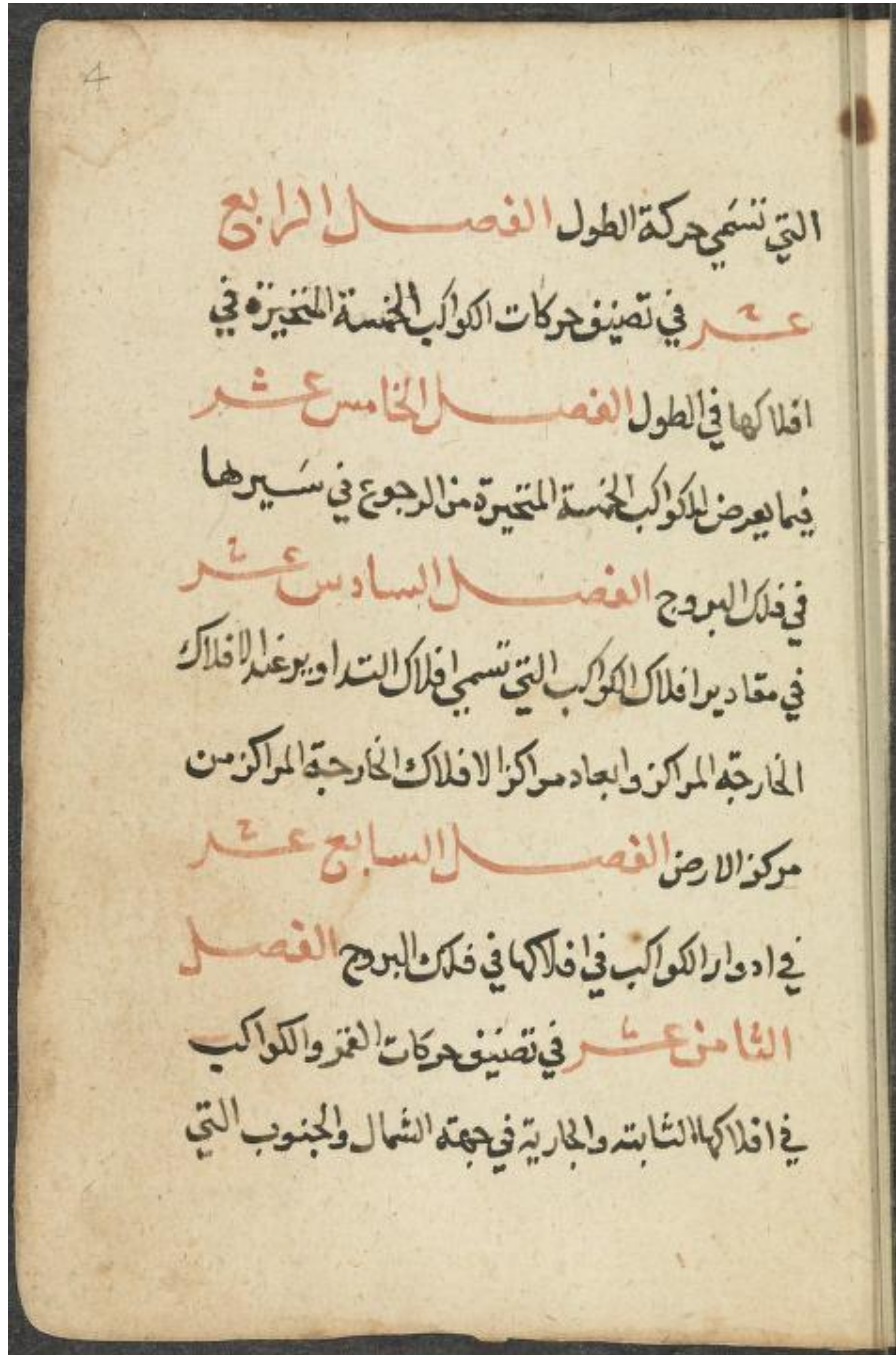 4
التي تسَمي حركة الطول الفصل الرابع
عشر في تصنيف حركات الكواكب الخمسة المتحيزة في
افلاكها في الطول الفصل الخامس عشر
فيما يعرض للكواكب الخمسة المتحيرة من الرجوع في سَيرها
في فلك البروج الفصل السادس عشر
في مقادير افلاك الكواكب التي تسمي افلاك التداوير عند الافلاك
الخارجة المراكز وابعاد مراكز الافلاك الخارجة المراكز من
مركز الارض الفصل السابع عشر
في ادوار الكواكب في افلاكها في فلك البروج الفصل
الثامن عشر في تصنيف حركات القمر والكواكب
في افلاكها الثابته والجارية في جهته الشمال والجنوب التي